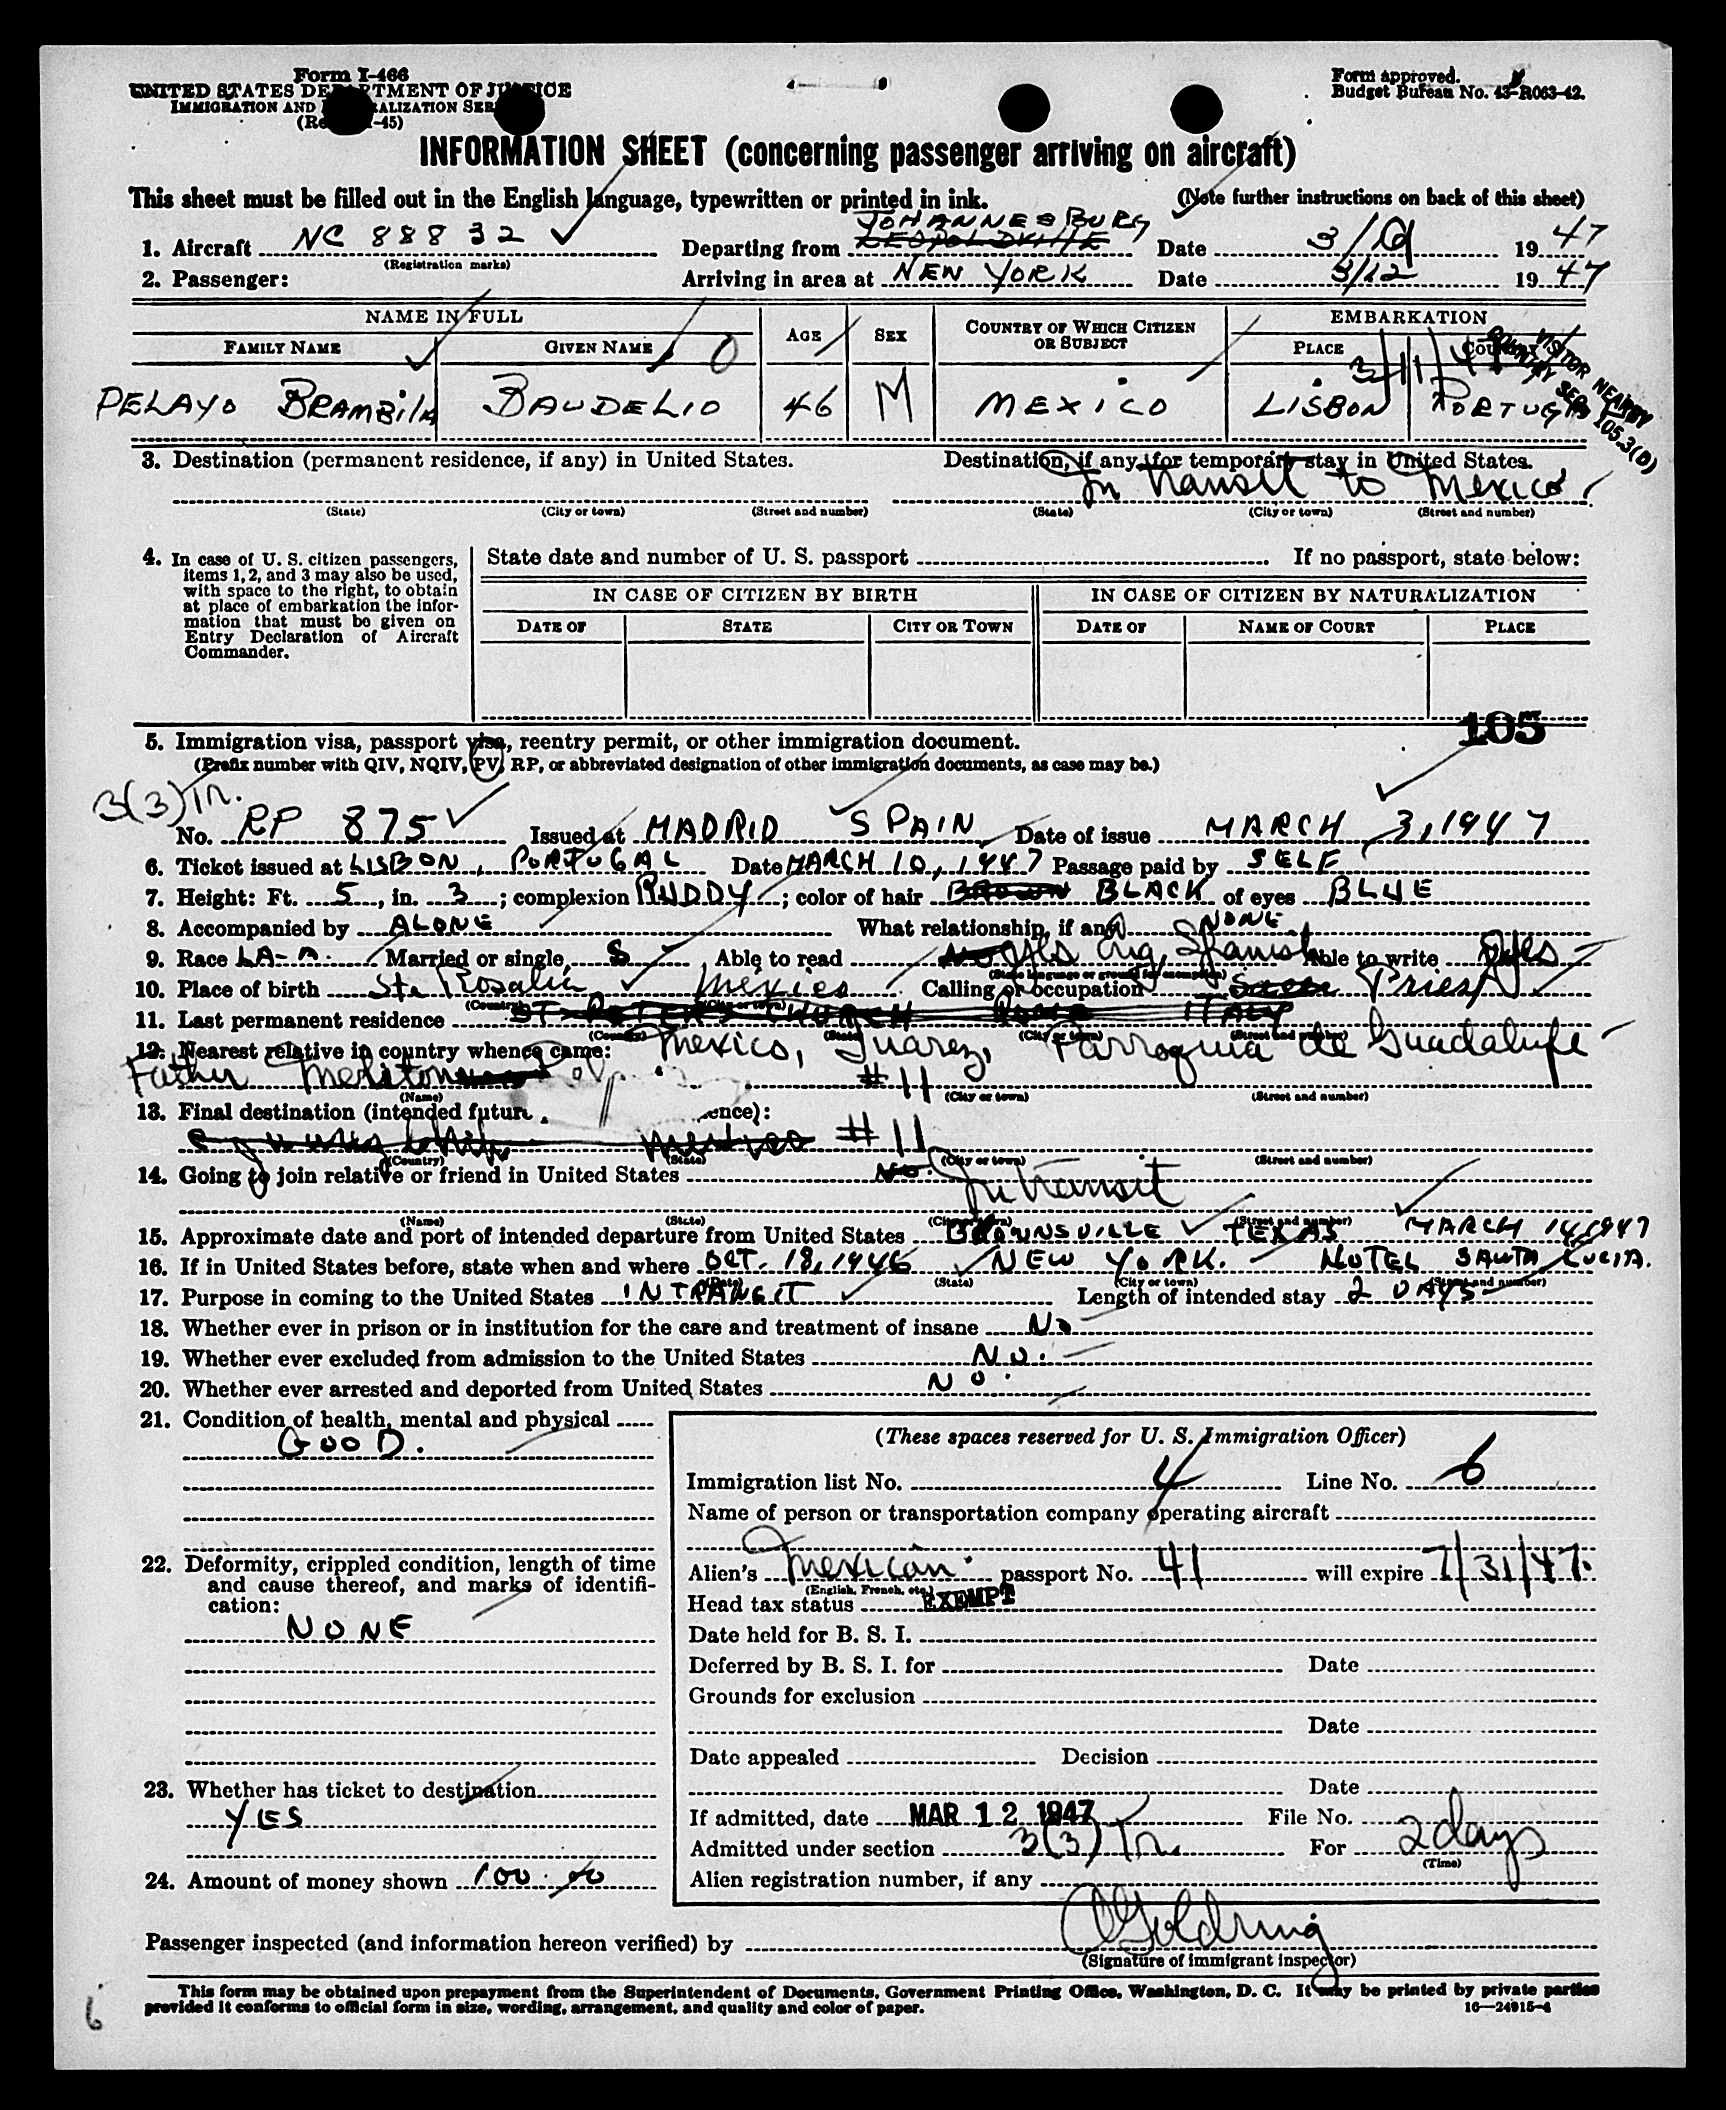 Form I-466
UNITED STATES DEPARTMENT OF JUSTICE
IMMIGRATION AND NATURALIZATION SERVICE
Form approved.
Budget Bureau No. 43-R063-42.
INFORMATION SHEET (concerning passenger arriving on aircraft)
This sheet must be filled out in the English language, typewritten or printed in ink. (Note further instructions on back of this sheet)
JOHANNESBURG
1. Aircraft NC 88832 Departing from LEOPOLDVILLE Date 3/9 1947
(Registration marks)
2. Passenger: Arriving in area at NEW YORK Date 3/12 1947
NAME IN FULL AGE SEX COUNTRY OF WHICH CITIZEN OR SUBJECT EMBARKATION
FAMILY NAME GIVEN NAME PLACE COUNTRY
3/11/47
PELAYO BRAMBILA BAUDELIO 46 M MEXICO LISBON PORTUGAL
VISITOR NEARBY
COUNTRY SEC. 105.3(D)
3. Destination (permanent residence, if any) in United States. Destination, if any, for temporary stay in United States.
In transit to Mexico
(State) (City or town) (Street and number) (State) (City or town) (Street and number)
4. In case of U. S. citizen passengers, items 1, 2, and 3 may also be used, with space to the right, to obtain at place of embarkation the information that must be given on Entry Declaration of Aircraft Commander.
State date and number of U. S. passport If no passport, state below:
IN CASE OF CITIZEN BY BIRTH IN CASE OF CITIZEN BY NATURALIZATION
DATE OF STATE CITY OR TOWN DATE OF NAME OF COURT PLACE
105
5. Immigration visa, passport visa, reentry permit, or other immigration document.
(Prefix number with QIV, NQIV, PV, RP, or abbreviated designation of other immigration documents, as case may be.)
3(3) Tr.
No. RP 875 Issued at MADRID SPAIN Date of issue MARCH 3, 1947
6. Ticket issued at LISBON, PORTUGAL Date MARCH 10, 1947 Passage paid by SELF
7. Height: Ft. 5, in. 3; complexion RUDDY; color of hair BROWN BLACK of eyes BLUE
8. Accompanied by ALONE What relationship, if any NONE
9. Race LA-A. Married or single S Able to read Yes Eng, Spanish Able to write Yes
(State language or ground for exemption)
10. Place of birth Sta Rosalia Mexico Calling or occupation Priest
(Country) (City or town)
11. Last permanent residence ST PETER'S CHURCH ROME ITALY
(Country) (State) (City or town) (Street and number)
12. Nearest relative in country whence came: Mexico, Juarez, Parroquia de Guadalupe
Father #11
(Name) (City or town) (Street and number)
13. Final destination (intended future
ence):
Mexico #11
(Country) (State) (City or town) (Street and number)
14. Going to join relative or friend in United States No. In transit
(Name) (State) (City or town) (Street and number)
15. Approximate date and port of intended departure from United States BROWNSVILLE TEXAS MARCH 14, 1947
16. If in United States before, state when and where OCT. 18, 1946 NEW YORK. HOTEL SANTA LUCIA.
(Date) (State) (City or town) (Street and number)
17. Purpose in coming to the United States INTRANSIT Length of intended stay 2 DAYS
18. Whether ever in prison or in institution for the care and treatment of insane No
19. Whether ever excluded from admission to the United States No.
20. Whether ever arrested and deported from United States No.
21. Condition of health, mental and physical
GOOD.
22. Deformity, crippled condition, length of time and cause thereof, and marks of identification:
NONE
23. Whether has ticket to destination
YES
24. Amount of money shown 100.00
(These spaces reserved for U. S. Immigration Officer)
Immigration list No. 4 Line No. 6
Name of person or transportation company operating aircraft
Alien's Mexican passport No. 41 will expire 7/31/47.
(English, French, etc.)
Head tax status EXEMPT
Date held for B. S. I.
Deferred by B. S. I. for Date
Grounds for exclusion
Date
Date appealed Decision
Date
If admitted, date MAR 12 1947 File No.
Admitted under section 3(3) Tr. For 2 days
(Time)
Alien registration number, if any
Passenger inspected (and information hereon verified) by Goldring
(Signature of immigrant inspector)
This form may be obtained upon prepayment from the Superintendent of Documents, Government Printing Office, Washington, D. C. It may be printed by private parties
provided it conforms to official form in size, wording, arrangement, and quality and color of paper. 16—24915-4
6